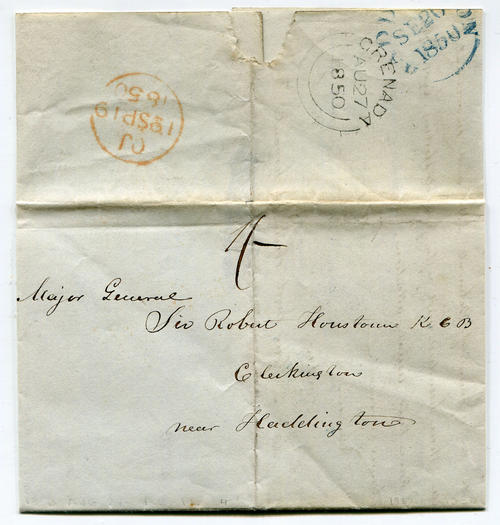 ON
SE 20
1850
GRENADA
AU 27
1850
OJ
19 SP 19
1850
1/-
Major General
Sir Robert Houstoun K C B
Clerkington
near Haddington